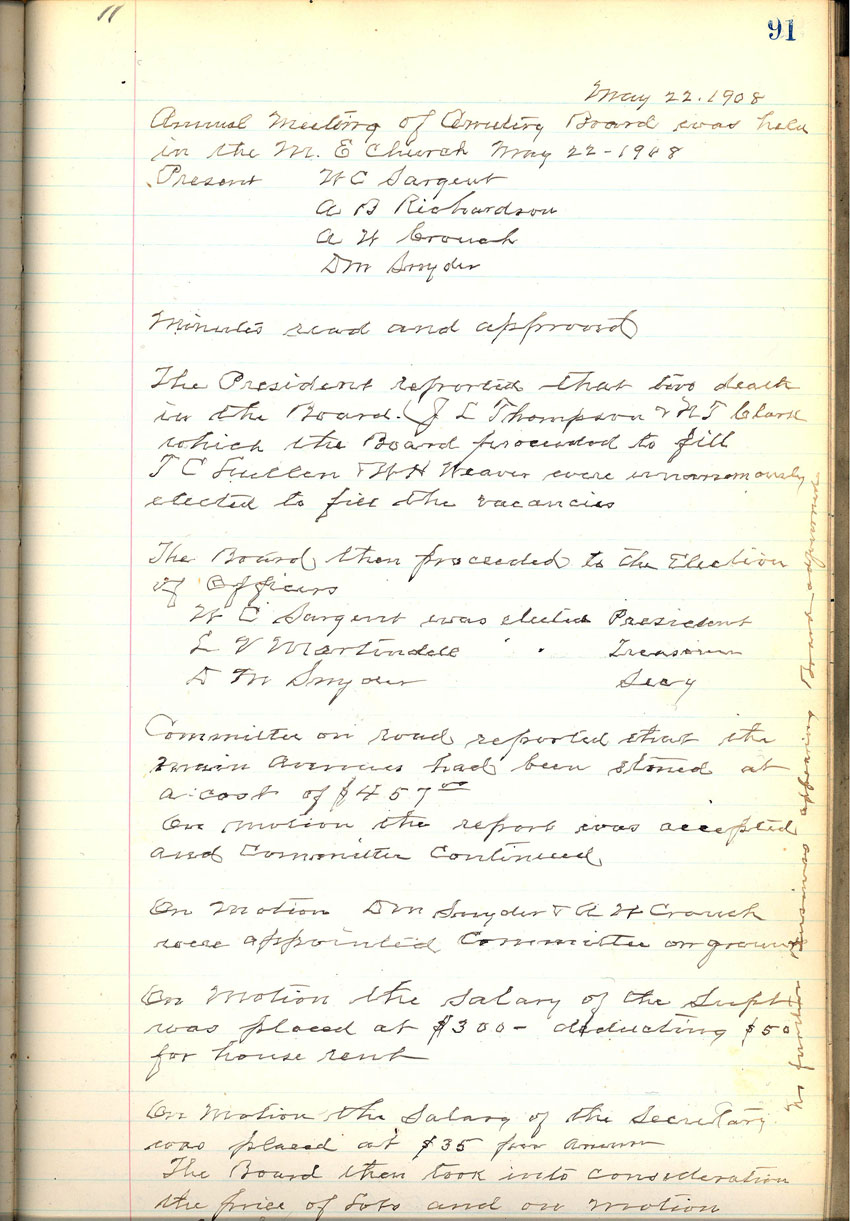 11
91
May 22. 1908
Annual Meeting of Cemetery Board was held
in the M. E Church May 22 - 1908
Present W C Sargent
A B Richardson
A W Crouch
D M Snyder
Minutes read and approved
The President reported that two death
in the Board. J L Thompson & N T Clark
which the Board proceeded to fill
T C Fullen & W H Weaver were
elected to fill the vacancies
The Board then proceeded to the Election
of Officers
W C Sargent was elected President
L V Martindell " " Treasurer
D M Snyder Secy
Committee on road reported that the
main Avenues had been stoned at
a cost of $457 00
On motion the report was accepted
and Committee Continued
On Motion D M Snyder & A W Crouch
were appointed Committee on grounds
On Motion the Salary of the Supt
was placed at $300 - deducting $50
for house rent
On Motion the Salary of the Secretary
was placed at $35 per Annum
The Board then took into consideration
the price of Lots and on motion
No further Business appearing Board adjourned